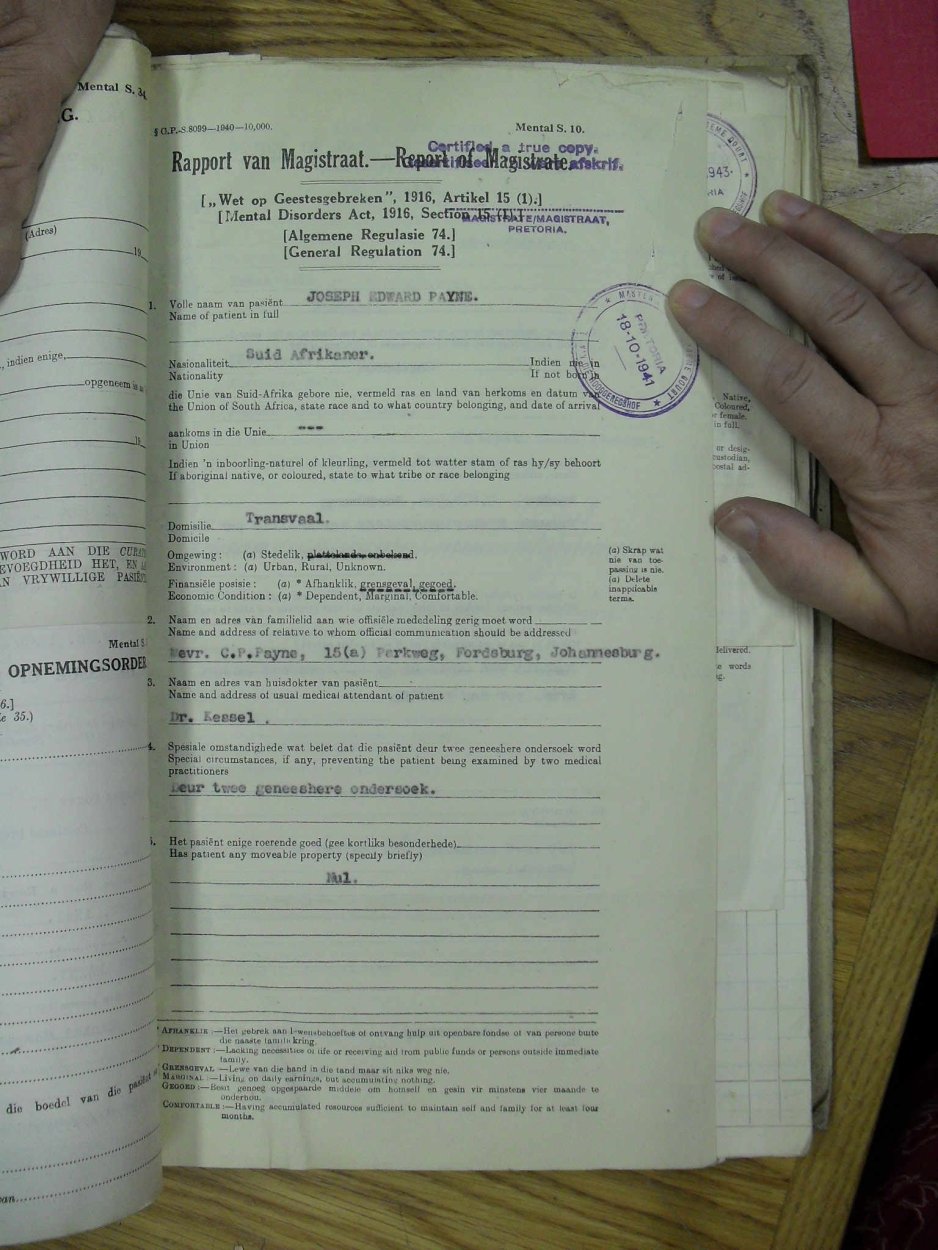 Mental S. 34
G.
(Adres)
19
, indien enige,
opgeneem is
19
WORD AAN DIE CURAT
EVOEGDHEID HET, EN
AN VRYWILLIGE PASIËN
Mental S.
OPNEMINGSORDER
6.]
35.)
die boedel van die pasiënt
§ G.P.-S.8099—1940—10,000.
Mental S. 10.
Certified a true copy.
afskrif.
Rapport van Magistraat.—Report of Magistrate.
[„Wet op Geestesgebreken”, 1916, Artikel 15 (1).]
[Mental Disorders Act, 1916, Section 15 (1).]
MAGISTRATE/MAGISTRAAT,
PRETORIA.
[Algemene Regulasie 74.]
[General Regulation 74.]
1. Volle naam van pasiënt JOSEPH EDWARD PAYNE.
Name of patient in full
Nasionaliteit Suid Afrikaner. Indien nie in
Nationality If not born in
die Unie van Suid-Afrika gebore nie, vermeld ras en land van herkoms en datum van
the Union of South Africa, state race and to what country belonging, and date of arrival
aankoms in die Unie ---
in Union
Indien 'n inboorling-naturel of kleurling, vermeld tot watter stam of ras hy/sy behoort
If aboriginal native, or coloured, state to what tribe or race belonging
Domisilie Transvaal.
Domicile
Omgewing : (a) Stedelik, plattelands, onbekend.
Environment : (a) Urban, Rural, Unknown.
Finansiële posisie : (a) * Afhanklik, grensgeval, gegoed.
Economic Condition : (a) * Dependent, Marginal, Comfortable.
(a) Skrap wat
nie van toe-
passing is nie.
(a) Delete
inapplicable
terms.
2. Naam en adres van familielid aan wie offisiële mededeling gerig moet word
Name and address of relative to whom official communication should be addressed
Mevr. C.P.Payne, 15(a) Parkweg, Fordsburg, Johannesburg.
3. Naam en adres van huisdokter van pasiënt
Name and address of usual medical attendant of patient
Dr. Kessel .
4. Spesiale omstandighede wat belet dat die pasiënt deur twee geneeshere ondersoek word
Special circumstances, if any, preventing the patient being examined by two medical
practitioners
Deur twee geneeshere ondersoek.
5. Het pasiënt enige roerende goed (gee kortliks besonderhede)
Has patient any moveable property (specify briefly)
Nul.
* AFHANKLIK :—Het gebrek aan lewensbehoeftes of ontvang hulp uit openbare fondse of van persone buite
die naaste familiekring.
* DEPENDENT :—Lacking necessities of life or receiving aid from public funds or persons outside immediate
family.
GRENSGEVAL :—Lewe van die hand in die tand maar sit niks weg nie.
MARGINAL :—Living on daily earnings, but accumulating nothing.
GEGOED :—Besit genoeg opgespaarde middele om homself en gesin vir minstens vier maande te
onderhou.
COMFORTABLE :—Having accumulated resources sufficient to maintain self and family for at least four
months.
MASTER
PRETORIA
18-10-1941
HOOGGEREGSHOF
EME COURT
1943
RIA
Native,
Coloured,
or female.
in full.
or desig-
custodian,
postal ad-
delivered.
words